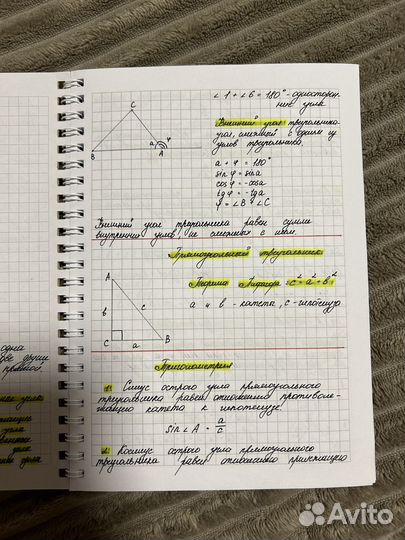 ∠1 + ∠6 = 180° - односторон-
ние углы
Внешний угол треугольника -
угол, смежный с одним из
углов треугольника.
C
B
α
φ
A
α + φ = 180°
sin φ = sin α
cos φ = -cos α
tg φ = -tg α
φ = ∠B + ∠C
Внешний угол треугольника равен сумме
внутренних углов, не смежных с ним.
Прямоугольный треугольник
Теорема Пифагора: c² = a² + b²
a и b - катеты, c - гипотенуза
A
b
c
C
a
B
Тригонометрия
1) Синус острого угла прямоугольного
треугольника равен отношению противоле-
жащего катета к гипотенузе:
sin∠A = a/c
2) Косинус острого угла прямоугольного
треугольника равен отношению прилежащего
одна
прямой
угла
угла
углы
Avito